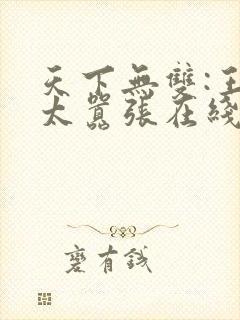 天下無雙:王
太囂張在綫
有錢